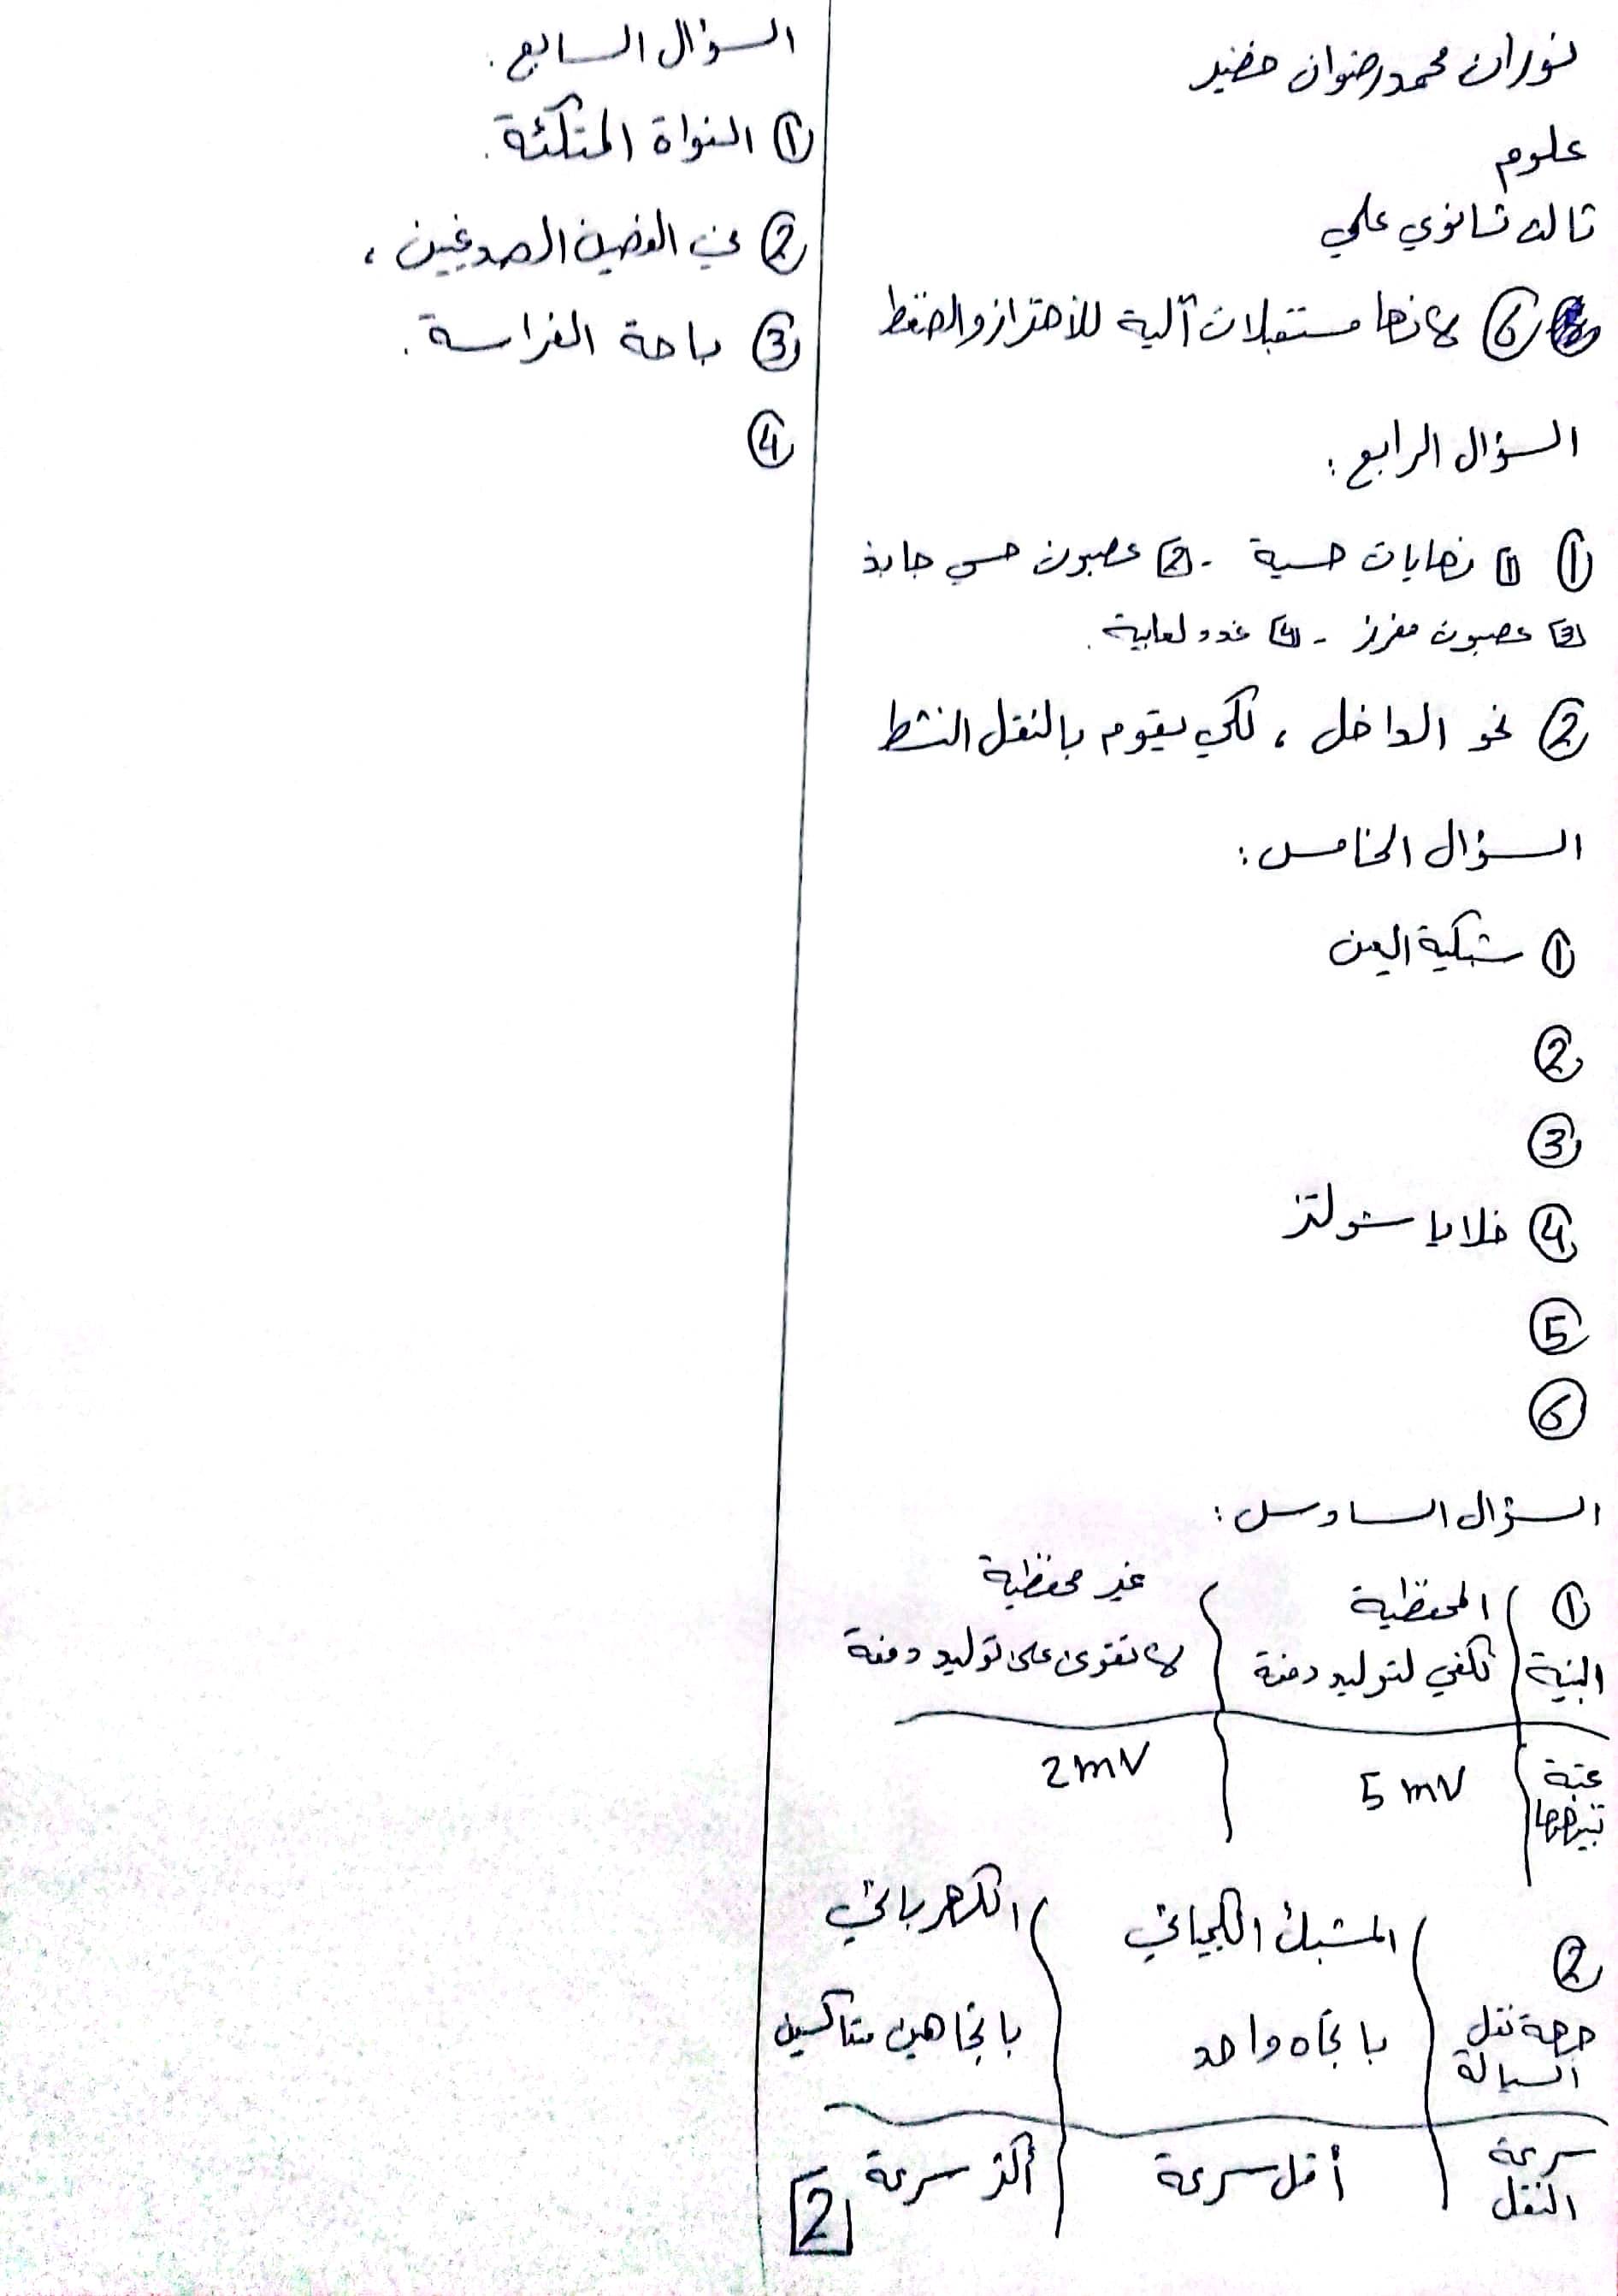 نوران محمد رضوان خضير
علوم
ثالث ثانوي علمي
⑥ لأنها مستقبلات آلية للأهتزاز والضغط
السؤال الرابع :
① [1] نهايات حسية - [2] عصبون حسي جابذ
[3] عصبون مفرز - [4] غدد لعابية .
② نحو الداخل ، لكي يقوم بالنقل النشط
السؤال الخامس :
① شبكية العين
②
③
④ خلايا شولتز
⑤
⑥
السؤال السادس :
① المحفظية غير محفظية
البنية تكفي لتوليد دفعة لا تقوى على توليد دفعة
عتبة تنبيهها 5 mV 2 mV
② المشبك الكيميائي الكهربائي
جهة نقل السيالة باتجاه واحد باتجاهين متعاكسين
سرعة النقل أقل سرعة أكثر سرعة
[2]
السؤال السابع :
① النواة المتكئة .
② في الفصين الصدغيين ،
③ باحة الفراسة .
④